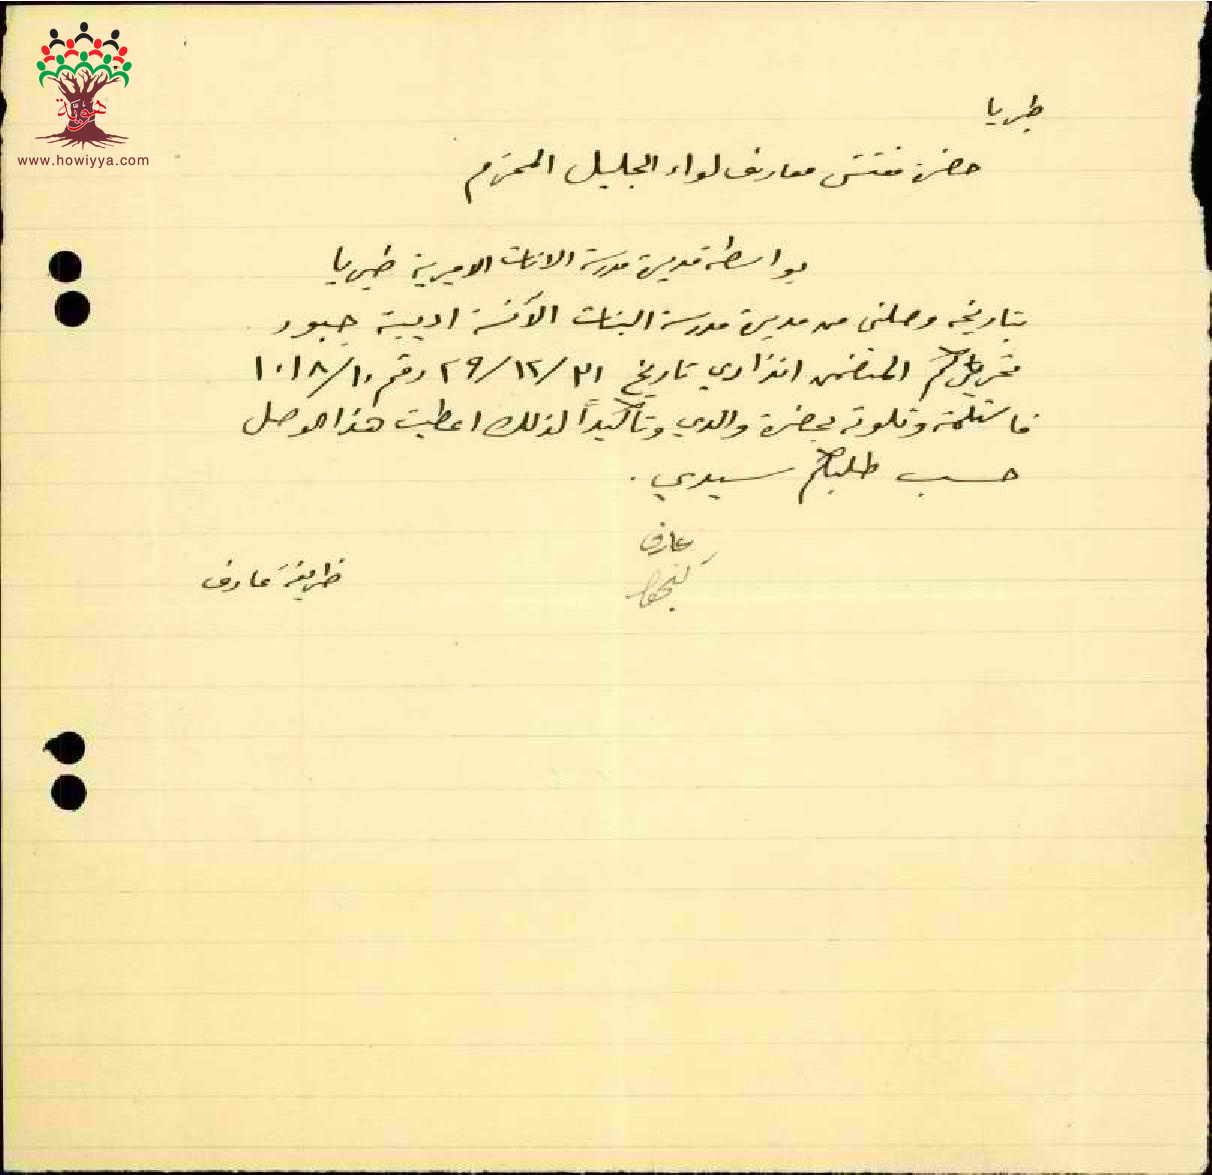 هوية
www.howiyya.com
طبريا
حضرة مفتش معارف لواء الجليل المحترم
بواسطة مديرة مدرسة الاناث الاميرية طبريا
بتاريخه وصلني من مديرة مدرسة البنات الآنسة اديبة جبور
تحريركم المتضمن انذاري تاريخ ٣١/١٢/٢٩ رقم ١٠/١٠١٨
فاستلمته وتلوته بحضرة والدي وتأكيداً لذلك اعطيت هذا الوصل
حسب طلبكم سيدي .
عارف
ظريفة عارف